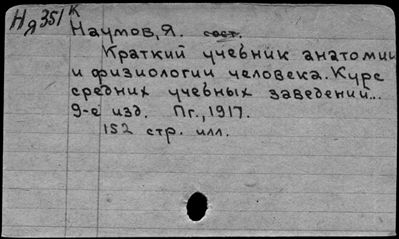 Ня351К
Наумов, Я. сост.
Краткий учебник анатомии
и физиологии человека. Курс
средних учебных заведений...
9-е изд. Пг., 1917.
152 стр. илл.